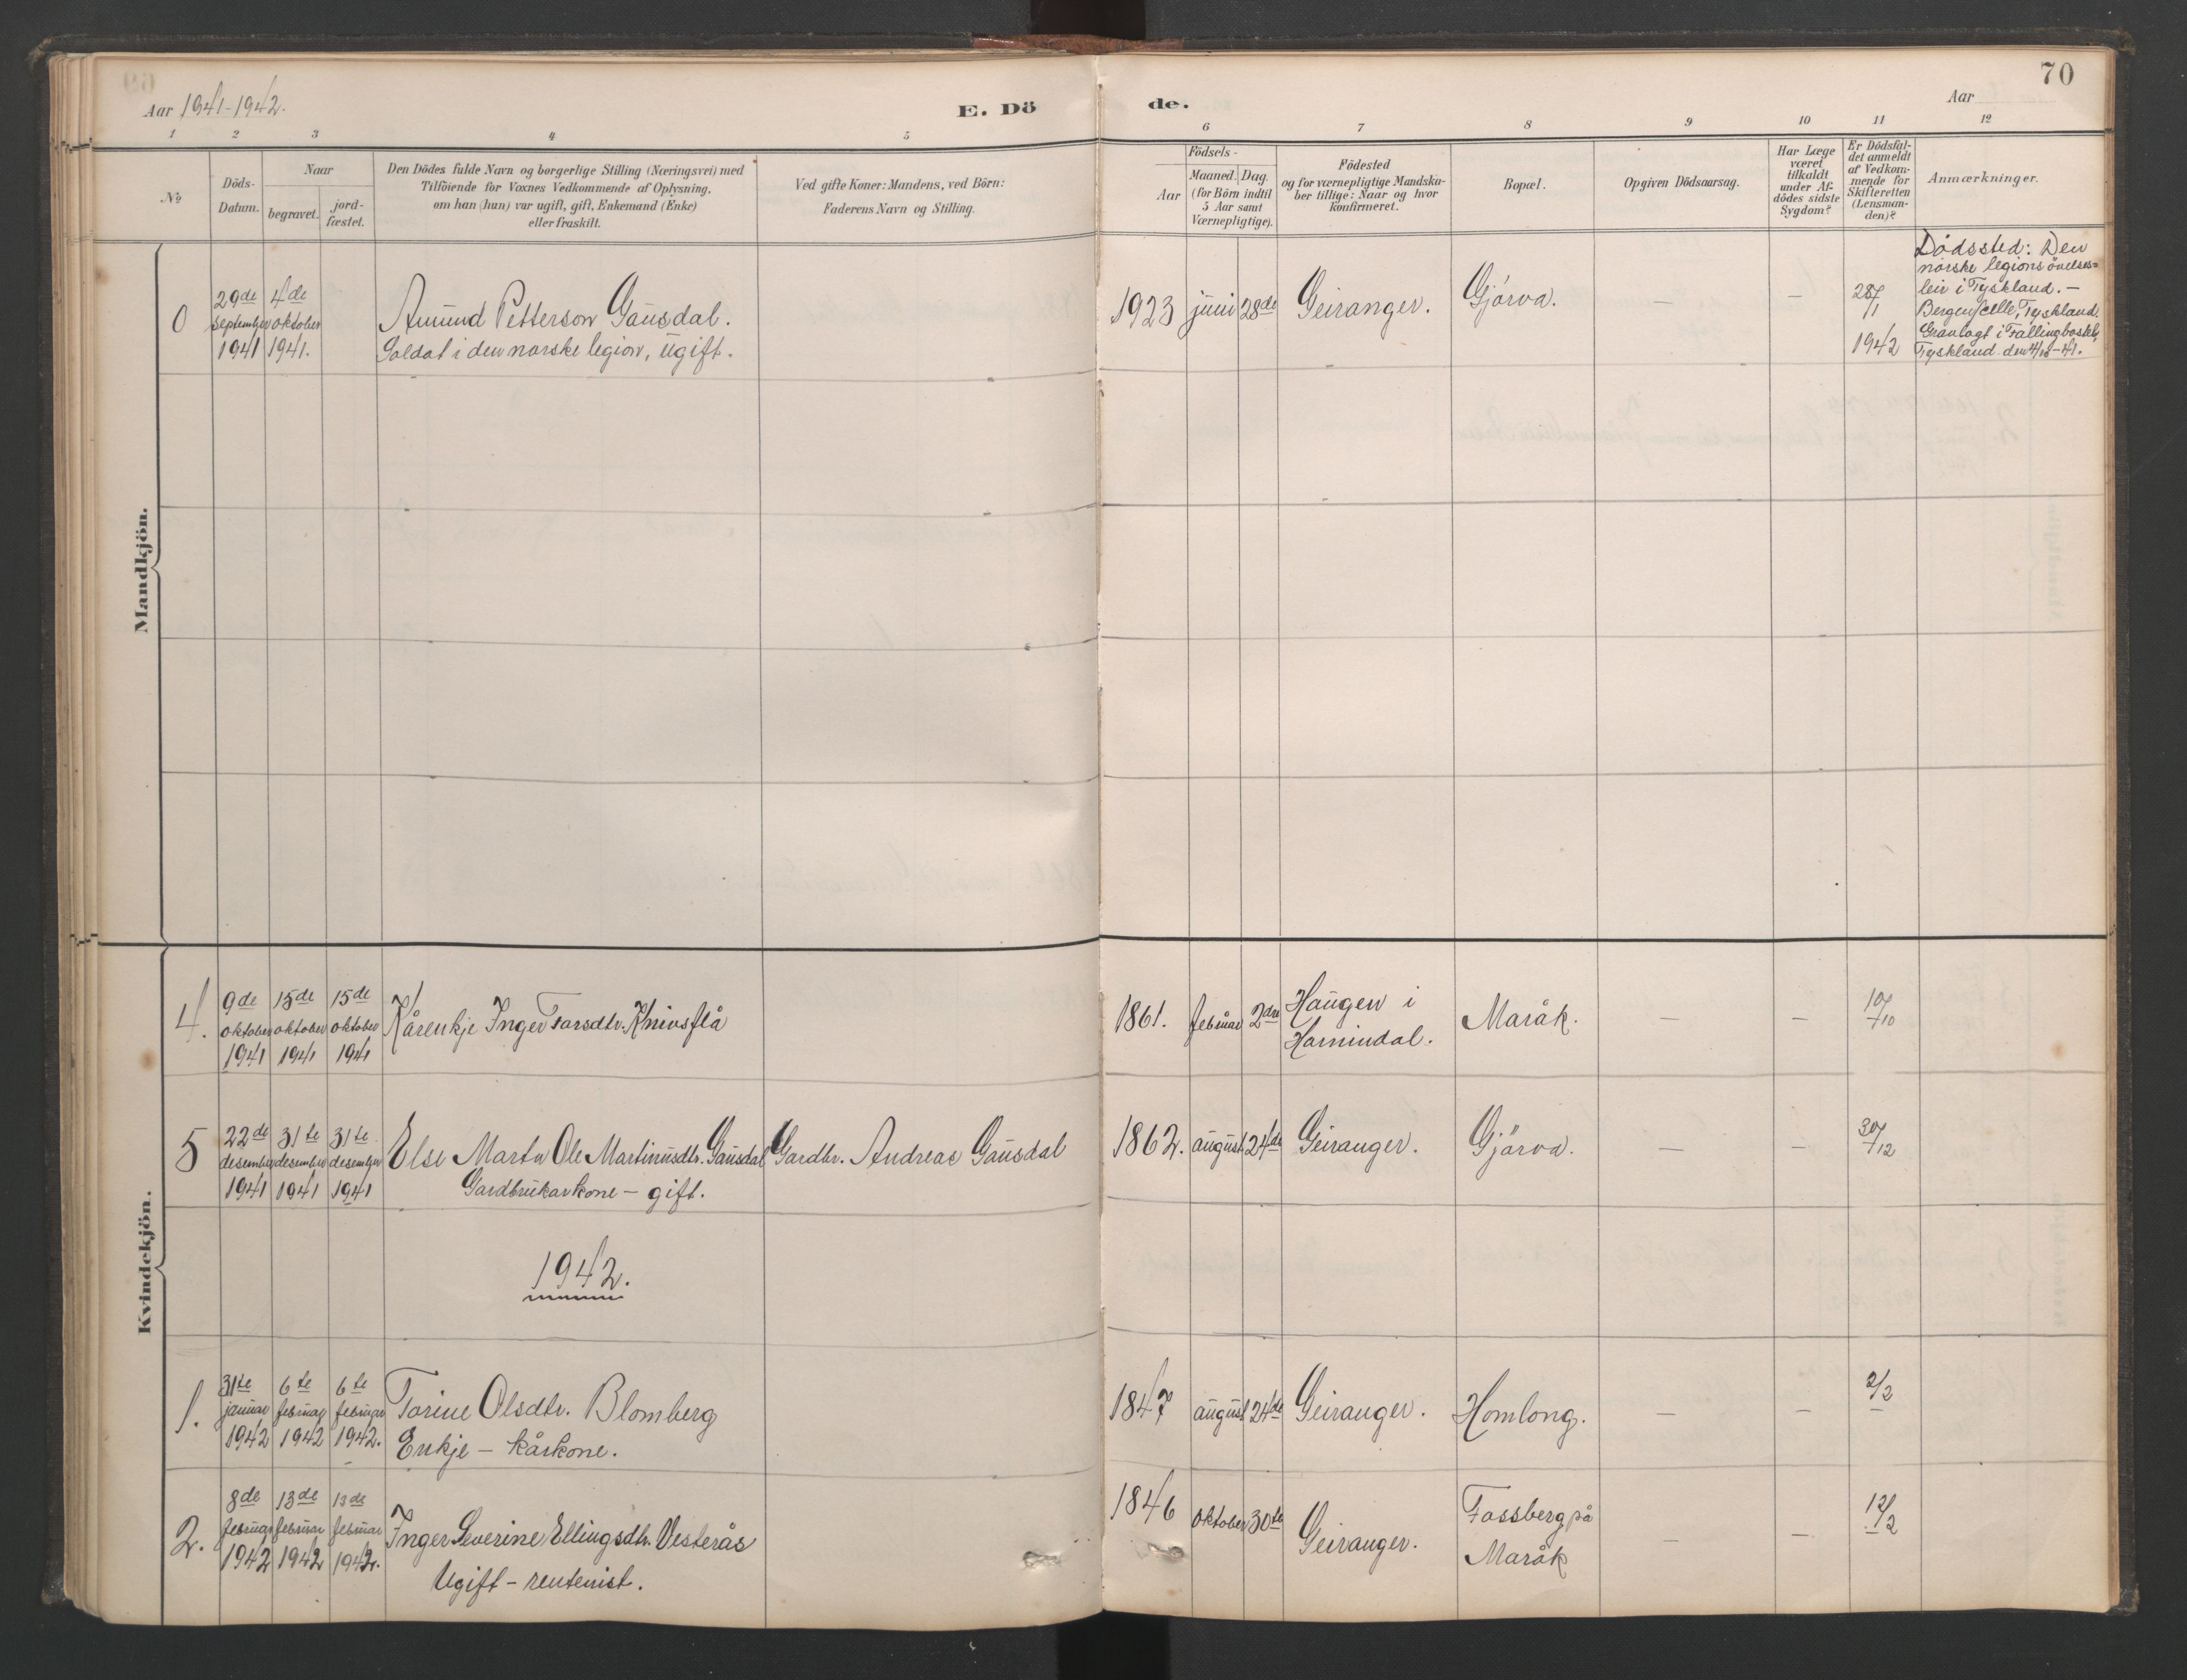 70
Aar 1941-1942.
E. Dö
de.
Aar
1 2 3 4 5 6 7 8 9 10 11 12
№
Döds-
Datum.
Naar
begravet.
jord-
fæstet.
Den Dödes fulde Navn og borgerlige Stilling (Næringsvei) med
Tilföiende for Voxnes Vedkommende af Oplysning,
om han (hun) var ugift, gift, Enkemand (Enke)
eller fraskilt.
Ved gifte Koner: Mandens, ved Börn:
Faderens Navn og Stilling.
Födsels-
Aar
Maaned. Dag.
(for Börn indtil
5 Aar samt
Værnepligtige).
Födested
og for værnepligtige Mandska-
ber tillige: Naar og hvor
konfirmeret.
Bopæl.
Opgiven Dödsaarsag.
Har Læge
været
tilkaldt
under Af-
dödes sidste
Sygdom?
Er Dödsfal-
det anmeldt
af Vedkom-
mende for
Skifteretten
(Lensman-
den)?
Anmærkninger.
Mandkjön.
0
29de
september
1941
4de
oktober
1941.
Amund Petterson Gausdal.
Soldat i den norske legion, ugift.
1923 juni 28de
Geiranger.
Gjörva.
—
—
28/1
1942
Dödssted: Den
norske legions övelses=
leir i Tyskland. —
Bergen/Celle, Tyskland.
Gravlagt i Fallingbostel,
Tyskland den 4/10-41.
Kvindekjön.
4.
9de
oktober
1941
15de
oktober
1941
15de
oktober
1941
Kårenkje Inger Tarsdtr. Knivsflå
1861. februar 2dre
Haugen i
Hornindal.
Maråk.
—
—
10/10
5
22de
desember
1941
31te
desember
1941
31te
desember
1941
Else Marta Ole Martinusdtr. Gausdal
Gardbrukarkone — gift.
Gardbr. Andreas Gausdal
1862. august 24de
Geiranger.
Gjörva.
—
—
30/12
1942.
1.
31te
januar
1942
6te
februar
1942
6te
februar
1942.
Torine Olsdtr. Blomberg
Enkje — kårkone.
1847 august 24de
Geiranger.
Homlong.
—
—
2/2
2.
8de
februar
1942
13de
februar
1942
13de
februar
1942.
Inger Severine Ellingsdtr. Vesterås
Ugift — rentenist.
1846 oktober 30te
Geiranger.
Fossberg på
Maråk
—
—
12/2